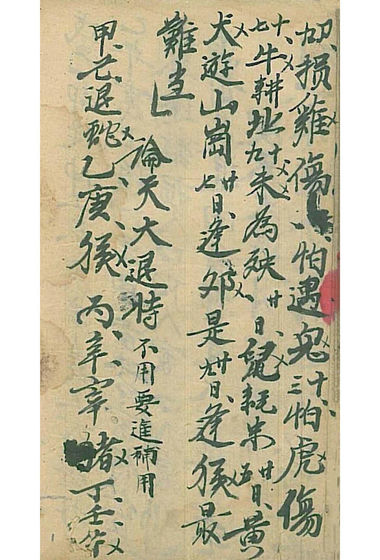 刼损雞傷八怕遇兎十三怕虎傷
十七牛耕地十九未為殃廿日鼠耗米廿五日黄
犬遊山崗廿七日逢卯是廿九日逢猴最
難当
論天大退時不用要進補用
甲己退蛇乙庚猴丙辛宰猪丁壬